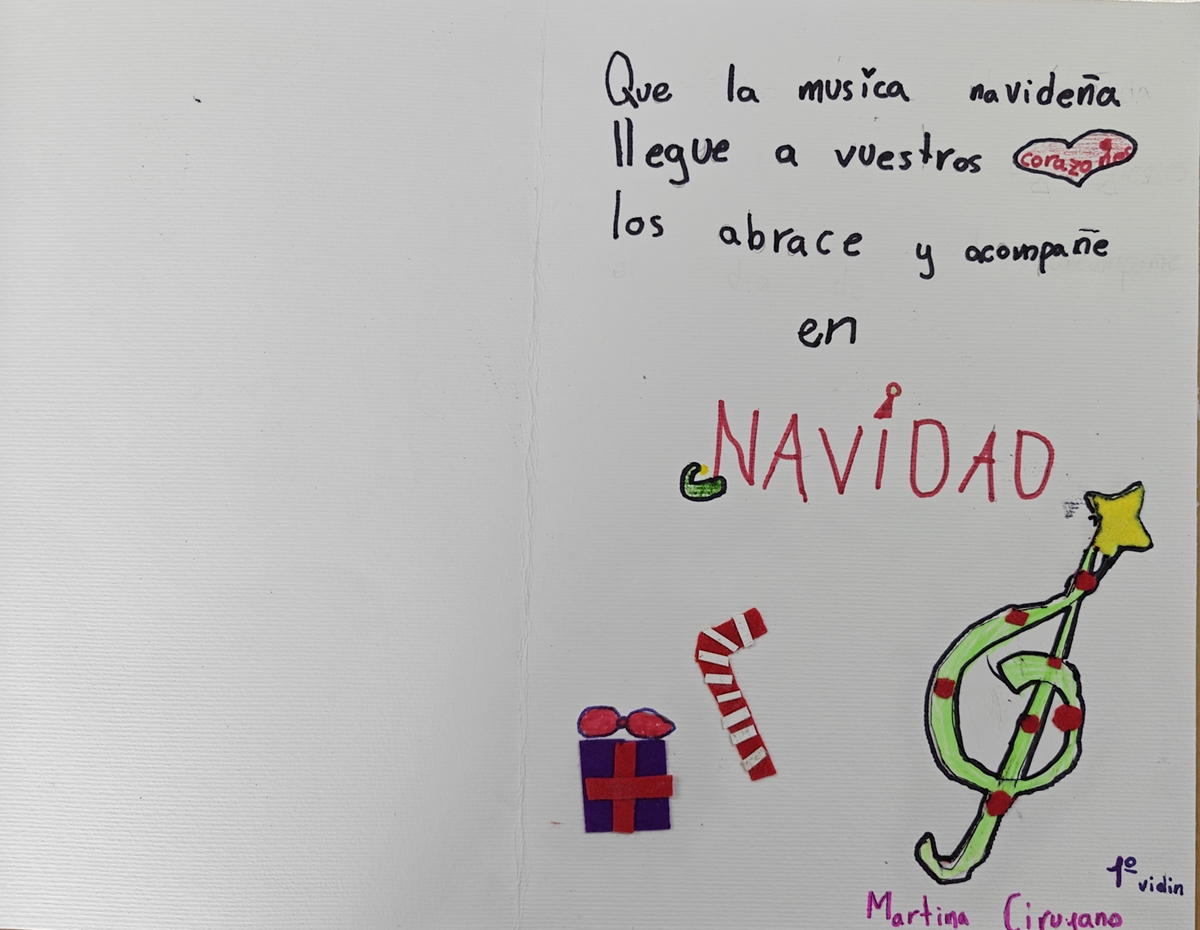 Que la musica navideña
llegue a vuestros corazones
los abrace y acompañe
en
NAViDAD
1º
vidin
Martina Cirujano